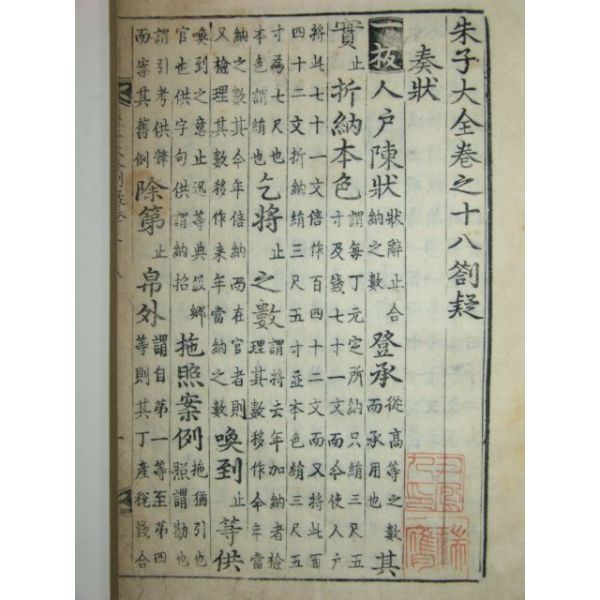 朱子大全卷之十八劄疑
奏狀
板人户陳狀狀辭止合納之數登承從高等之數而承用也其
實止折納本色謂每丁元定所納只絹三尺五寸及錢七十一文而今使人户
將此七十一文倍作百四十二文而又將此百四十二文折納絹三尺五寸並本色絹三尺五
寸爲七尺也本色謂絹也乞將止之數謂將去年加納者檢理其數移作今年當
納之數其今年倍納而在官者則又檢理其數移作來年當納之數喚到止等供
喚到之意止迅等典級鄉官也供字句供謂納招拖照案例拖猶引也照謂勘也
謂引考供辭而案其舊例除第止帛外謂自第一等至第四等則其丁産稅錢合